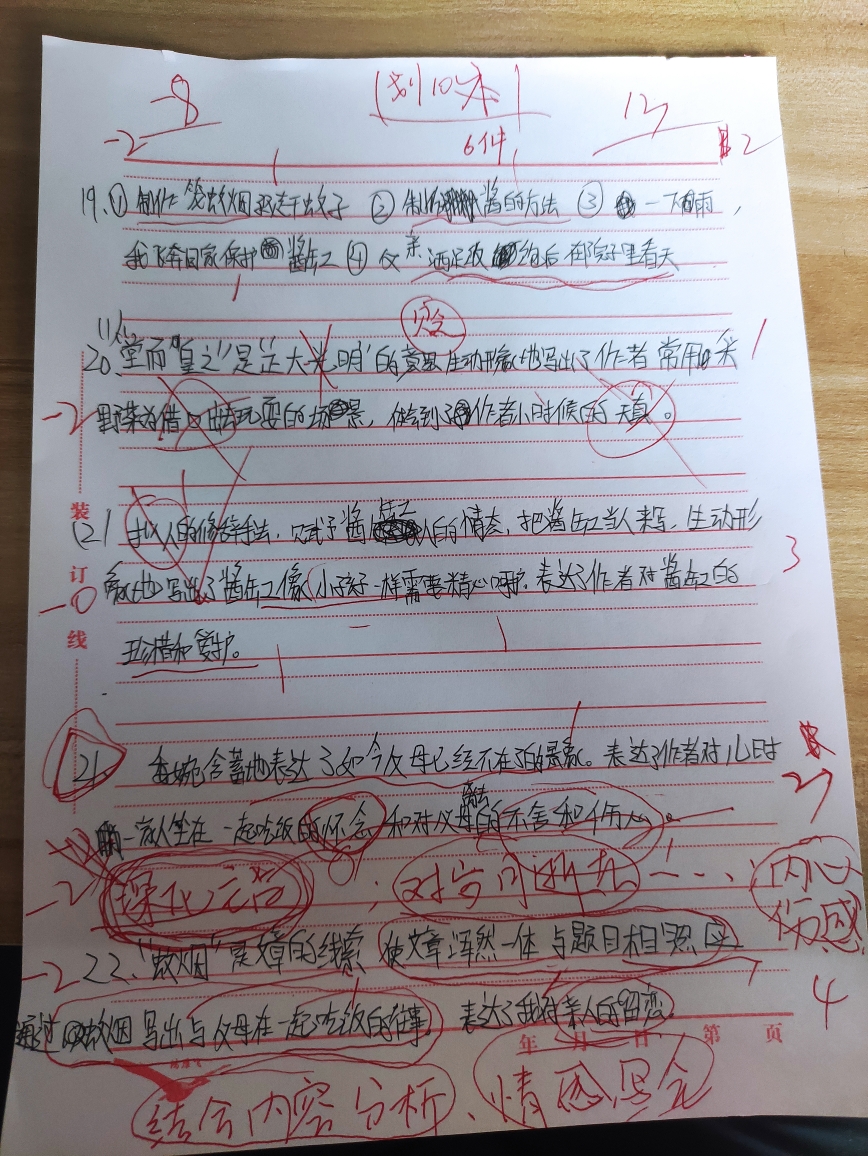 -8
划10本
6件
-2
2
19.① 制作 蚊烟 赶走蚊子 ② 制作酱的方法 ③ 一下雨,
我飞奔回家保护酱缸 ④ 父亲 酒足饭饱后 在院子里看天
贬
20. 堂而"皇之"是"正大光明"的意思 生动形象地写出了作者 常用 采
1
-2
野菜为借口 出去玩耍的场景, 体会到了作者小时候的天真。
(2) 拟人的修辞手法, 赋予酱缸以人的情态, 把酱缸当人来写, 生动形
3
-0
象地写出了酱缸像小孩子一样需要精心呵护, 表达了作者对酱缸的
珍惜和爱护。
21. 委婉含蓄地表达了如今父母已经不在了的景象。表达了作者对儿时
2
一家人坐在一起吃饭的怀念 和对父母离去的不舍和伤心。
-2
对岁月逝去
内心伤感
-2
22、"蚊烟"是文章的线索 使文章浑然一体 与题目相照应
4
通过蚊烟 写出与父母在一起吃饭的往事。表达了我对亲人的留恋。
年 月 日 第 页
结合内容分析、情感
装
订
线